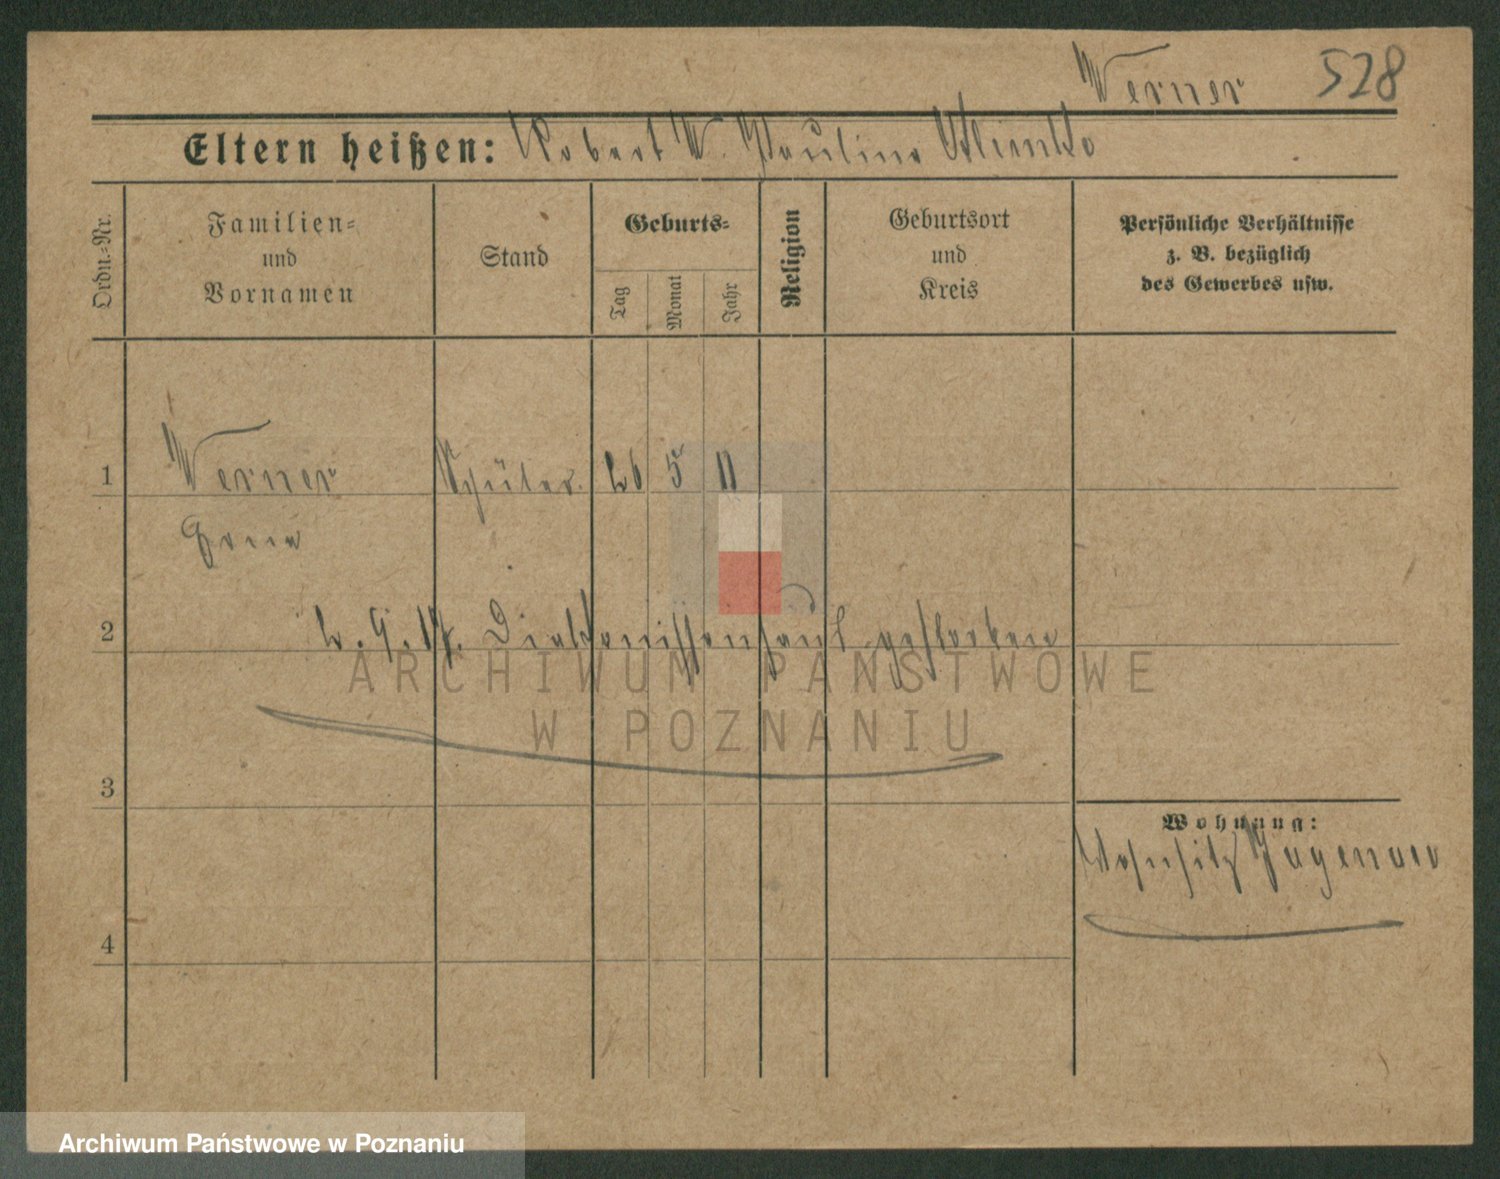 Werner 528
Eltern heißen: Robert W. Pauline Klimko
Ordn.-Nr.
Familien-
und
Vornamen
Stand
Geburts-
Tag
Monat
Jahr
Religion
Geburtsort
und
Kreis
Persönliche Verhältnisse
z. B. bezüglich
des Gewerbes usw.
1 Werner Schüler. 26 5 11
2 2. 9. 17. Diakonissenhaus gestorben
ARCHIWUM PAŃSTWOWE
W POZNANIU
3
Wohnung:
Wohnsitz
4
Archiwum Państwowe w Poznaniu